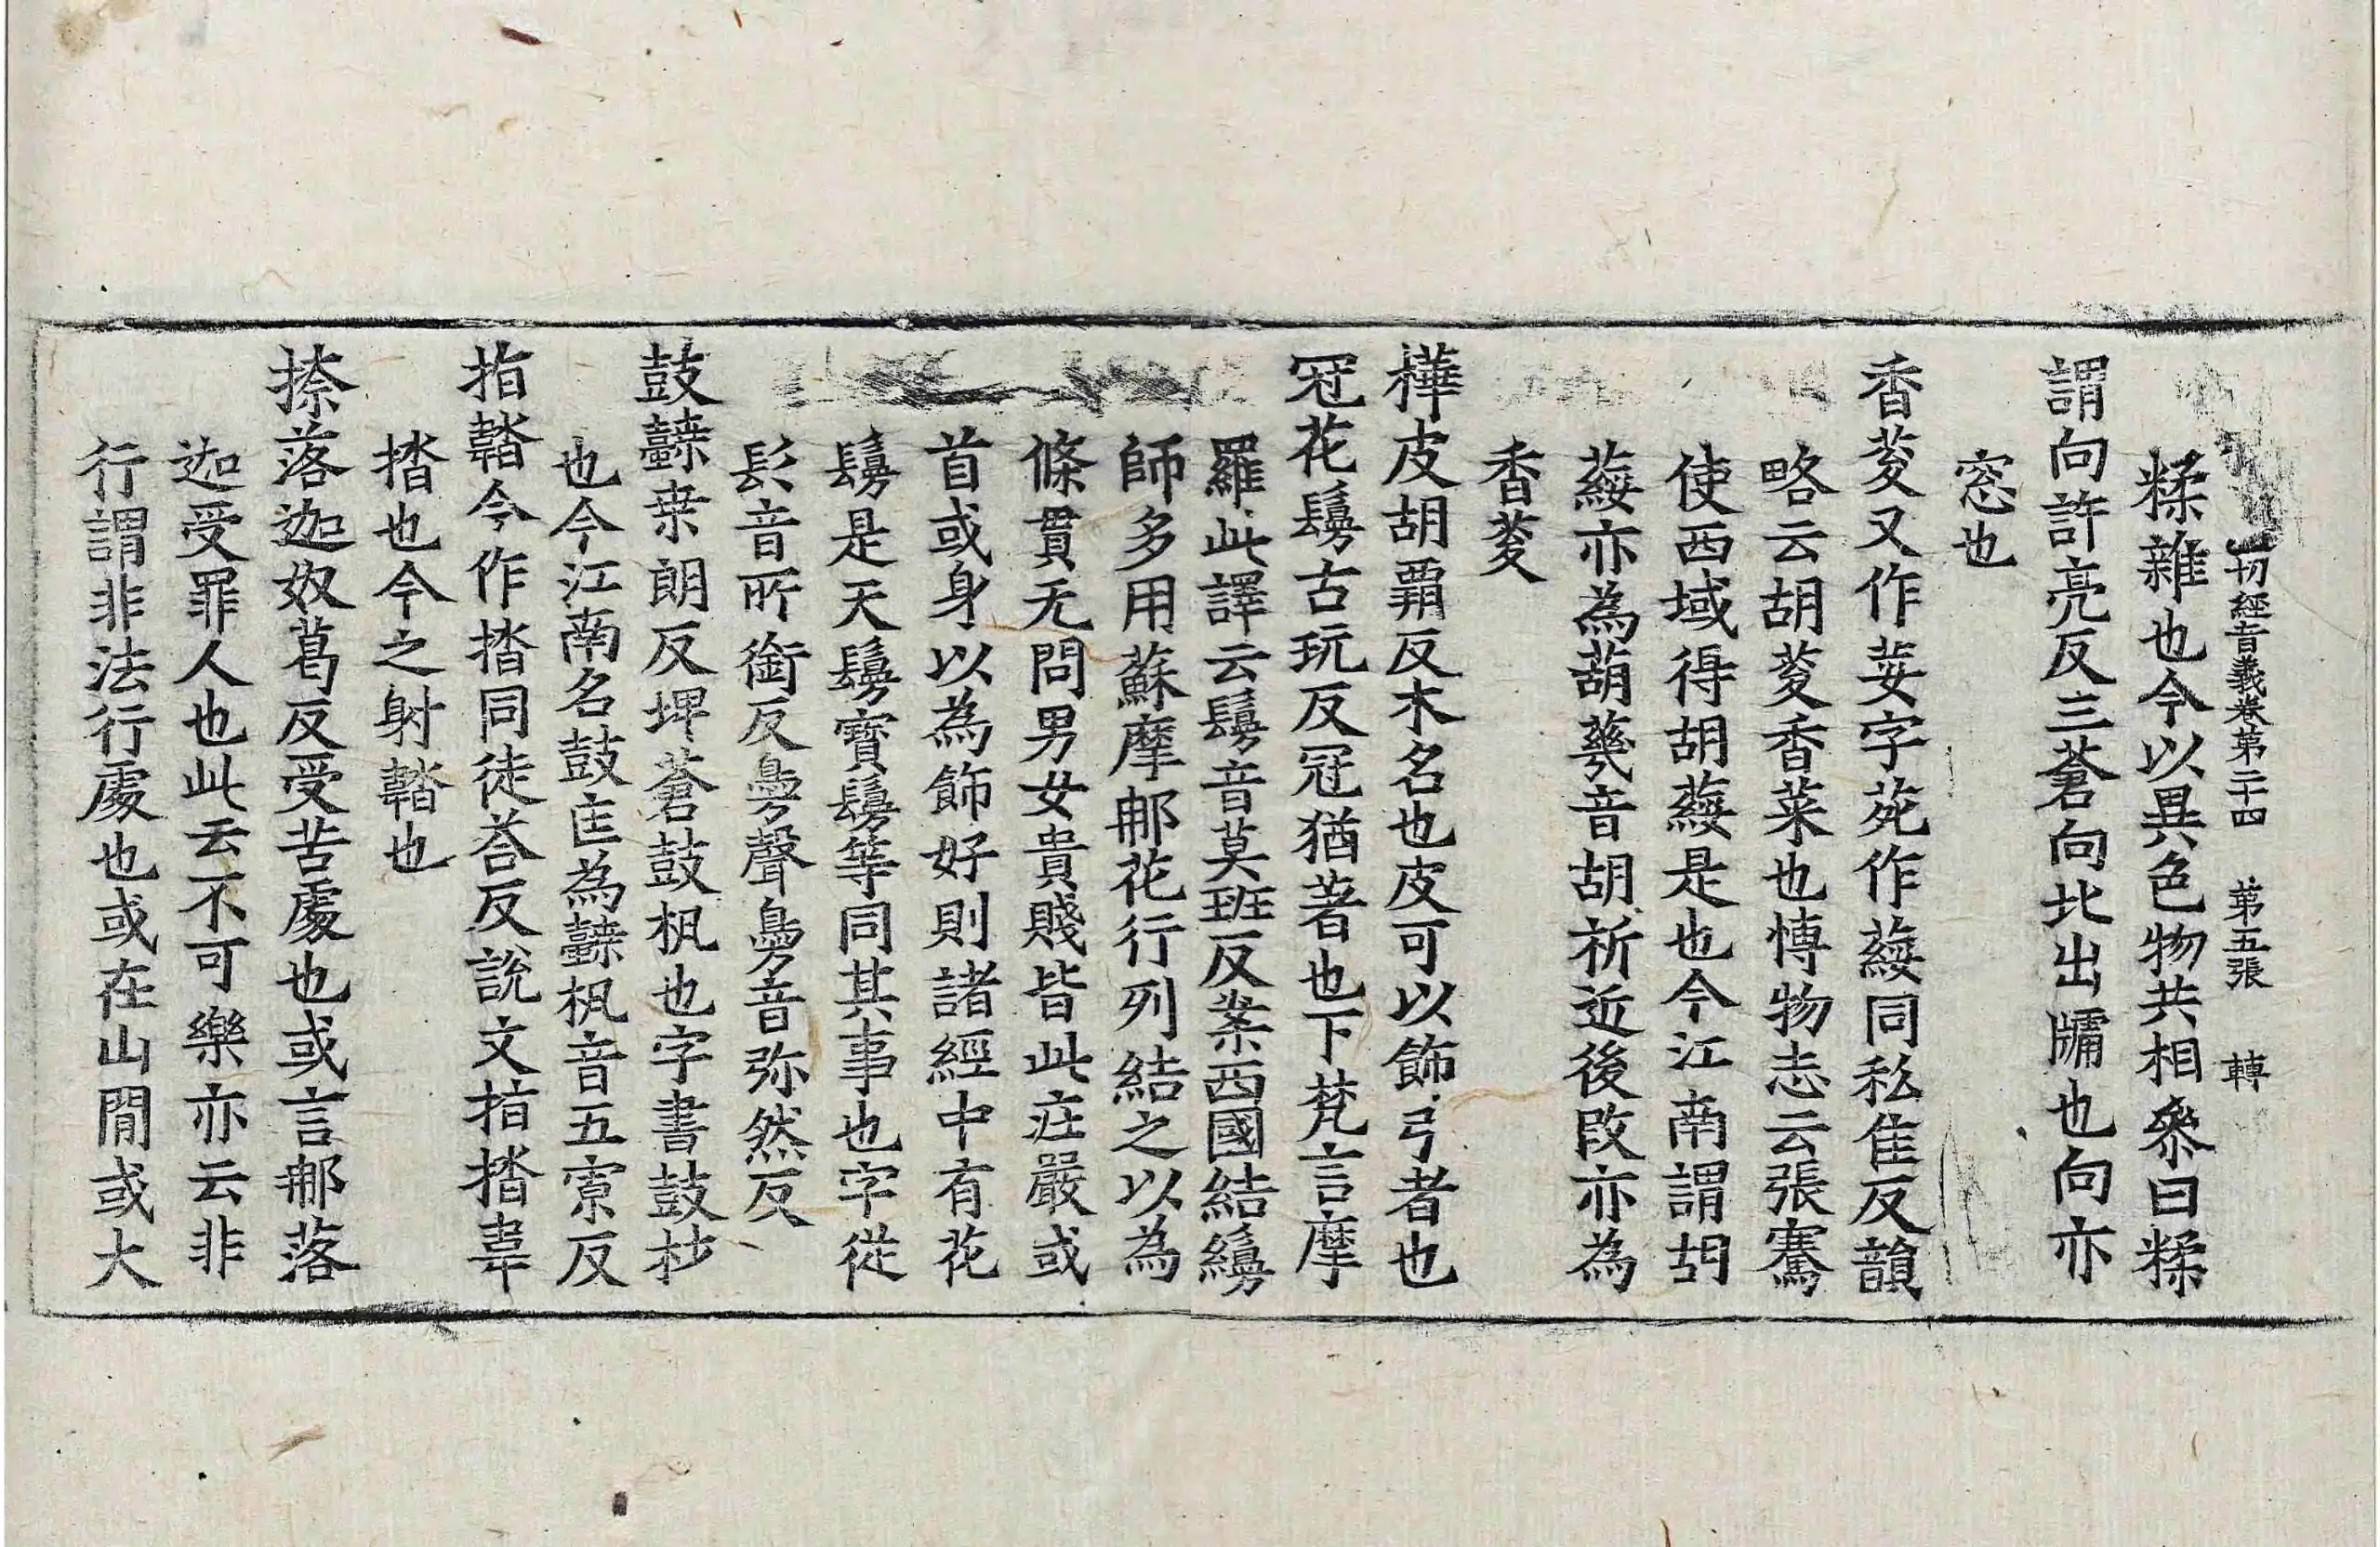 切經音義卷第二十四 第五張 轉
糅雜也今以異色物共相叅曰糅
謂向許亮反三蒼向北出牖也向亦
窓也
香荾又作荽字苑作葰同私隹反韻
略云胡荾香菜也博物志云張騫
使西域得胡葰是也今江南謂胡
葰亦為葫䕫音胡祈近後改亦為
香荾
樺皮胡霸反木名也皮可以飾弓者也
冠花鬘古玩反冠猶著也下梵言摩
羅此譯云鬘音莫班反案西國結鬘
師多用蘇摩那花行列結之以為
條貫无問男女貴賤皆此莊嚴或
首或身以為飾好則諸經中有花
鬘是天鬘寶鬘等同其事也字從
髟音所銜反臱聲臱音弥然反
鼓䪙桒朗反埤蒼鼓枫也字書鼓材
也今江南名鼓匡為䪙枫音五寡反
指鞜今作揩同徒荅反說文指揩韋
揩也今之射鞜也
捺落迦奴葛反受苦處也或言那落
迦受罪人也此云不可樂亦云非
行謂非法行處也或在山間或大